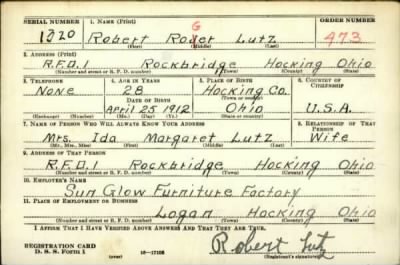 SERIAL NUMBER 1. NAME (Print) ORDER NUMBER
1320 Robert Roger Lutz 473
(First) (Middle) (Last)
2. ADDRESS (Print)
R.F.D.1 Rockbridge Hocking Ohio
(Number and street or R. F. D. number) (Town) (County) (State)
3. TELEPHONE 4. AGE IN YEARS 5. PLACE OF BIRTH 6. COUNTRY OF CITIZENSHIP
None 28 Hocking Co.
DATE OF BIRTH (Town or county)
April 25 1912 Ohio U.S.A.
(Exchange) (Number) (Mo.) (Day) (Yr.) (State or country)
7. NAME OF PERSON WHO WILL ALWAYS KNOW YOUR ADDRESS 8. RELATIONSHIP OF THAT PERSON
Mrs. Ida Margaret Lutz Wife
(Mr., Mrs., Miss) (First) (Middle) (Last)
9. ADDRESS OF THAT PERSON
R.F.D.1 Rockbridge Hocking Ohio
(Number and street or R. F. D. number) (Town) (County) (State)
10. EMPLOYER'S NAME
Sun Glow Furniture Factory
11. PLACE OF EMPLOYMENT OR BUSINESS
Logan Hocking Ohio
(Number and street or R. F. D. number) (Town) (County) (State)
I AFFIRM THAT I HAVE VERIFIED ABOVE ANSWERS AND THAT THEY ARE TRUE.
REGISTRATION CARD
D. S. S. Form 1 (over) 16—17105 Robert Lutz
(Registrant's signature)